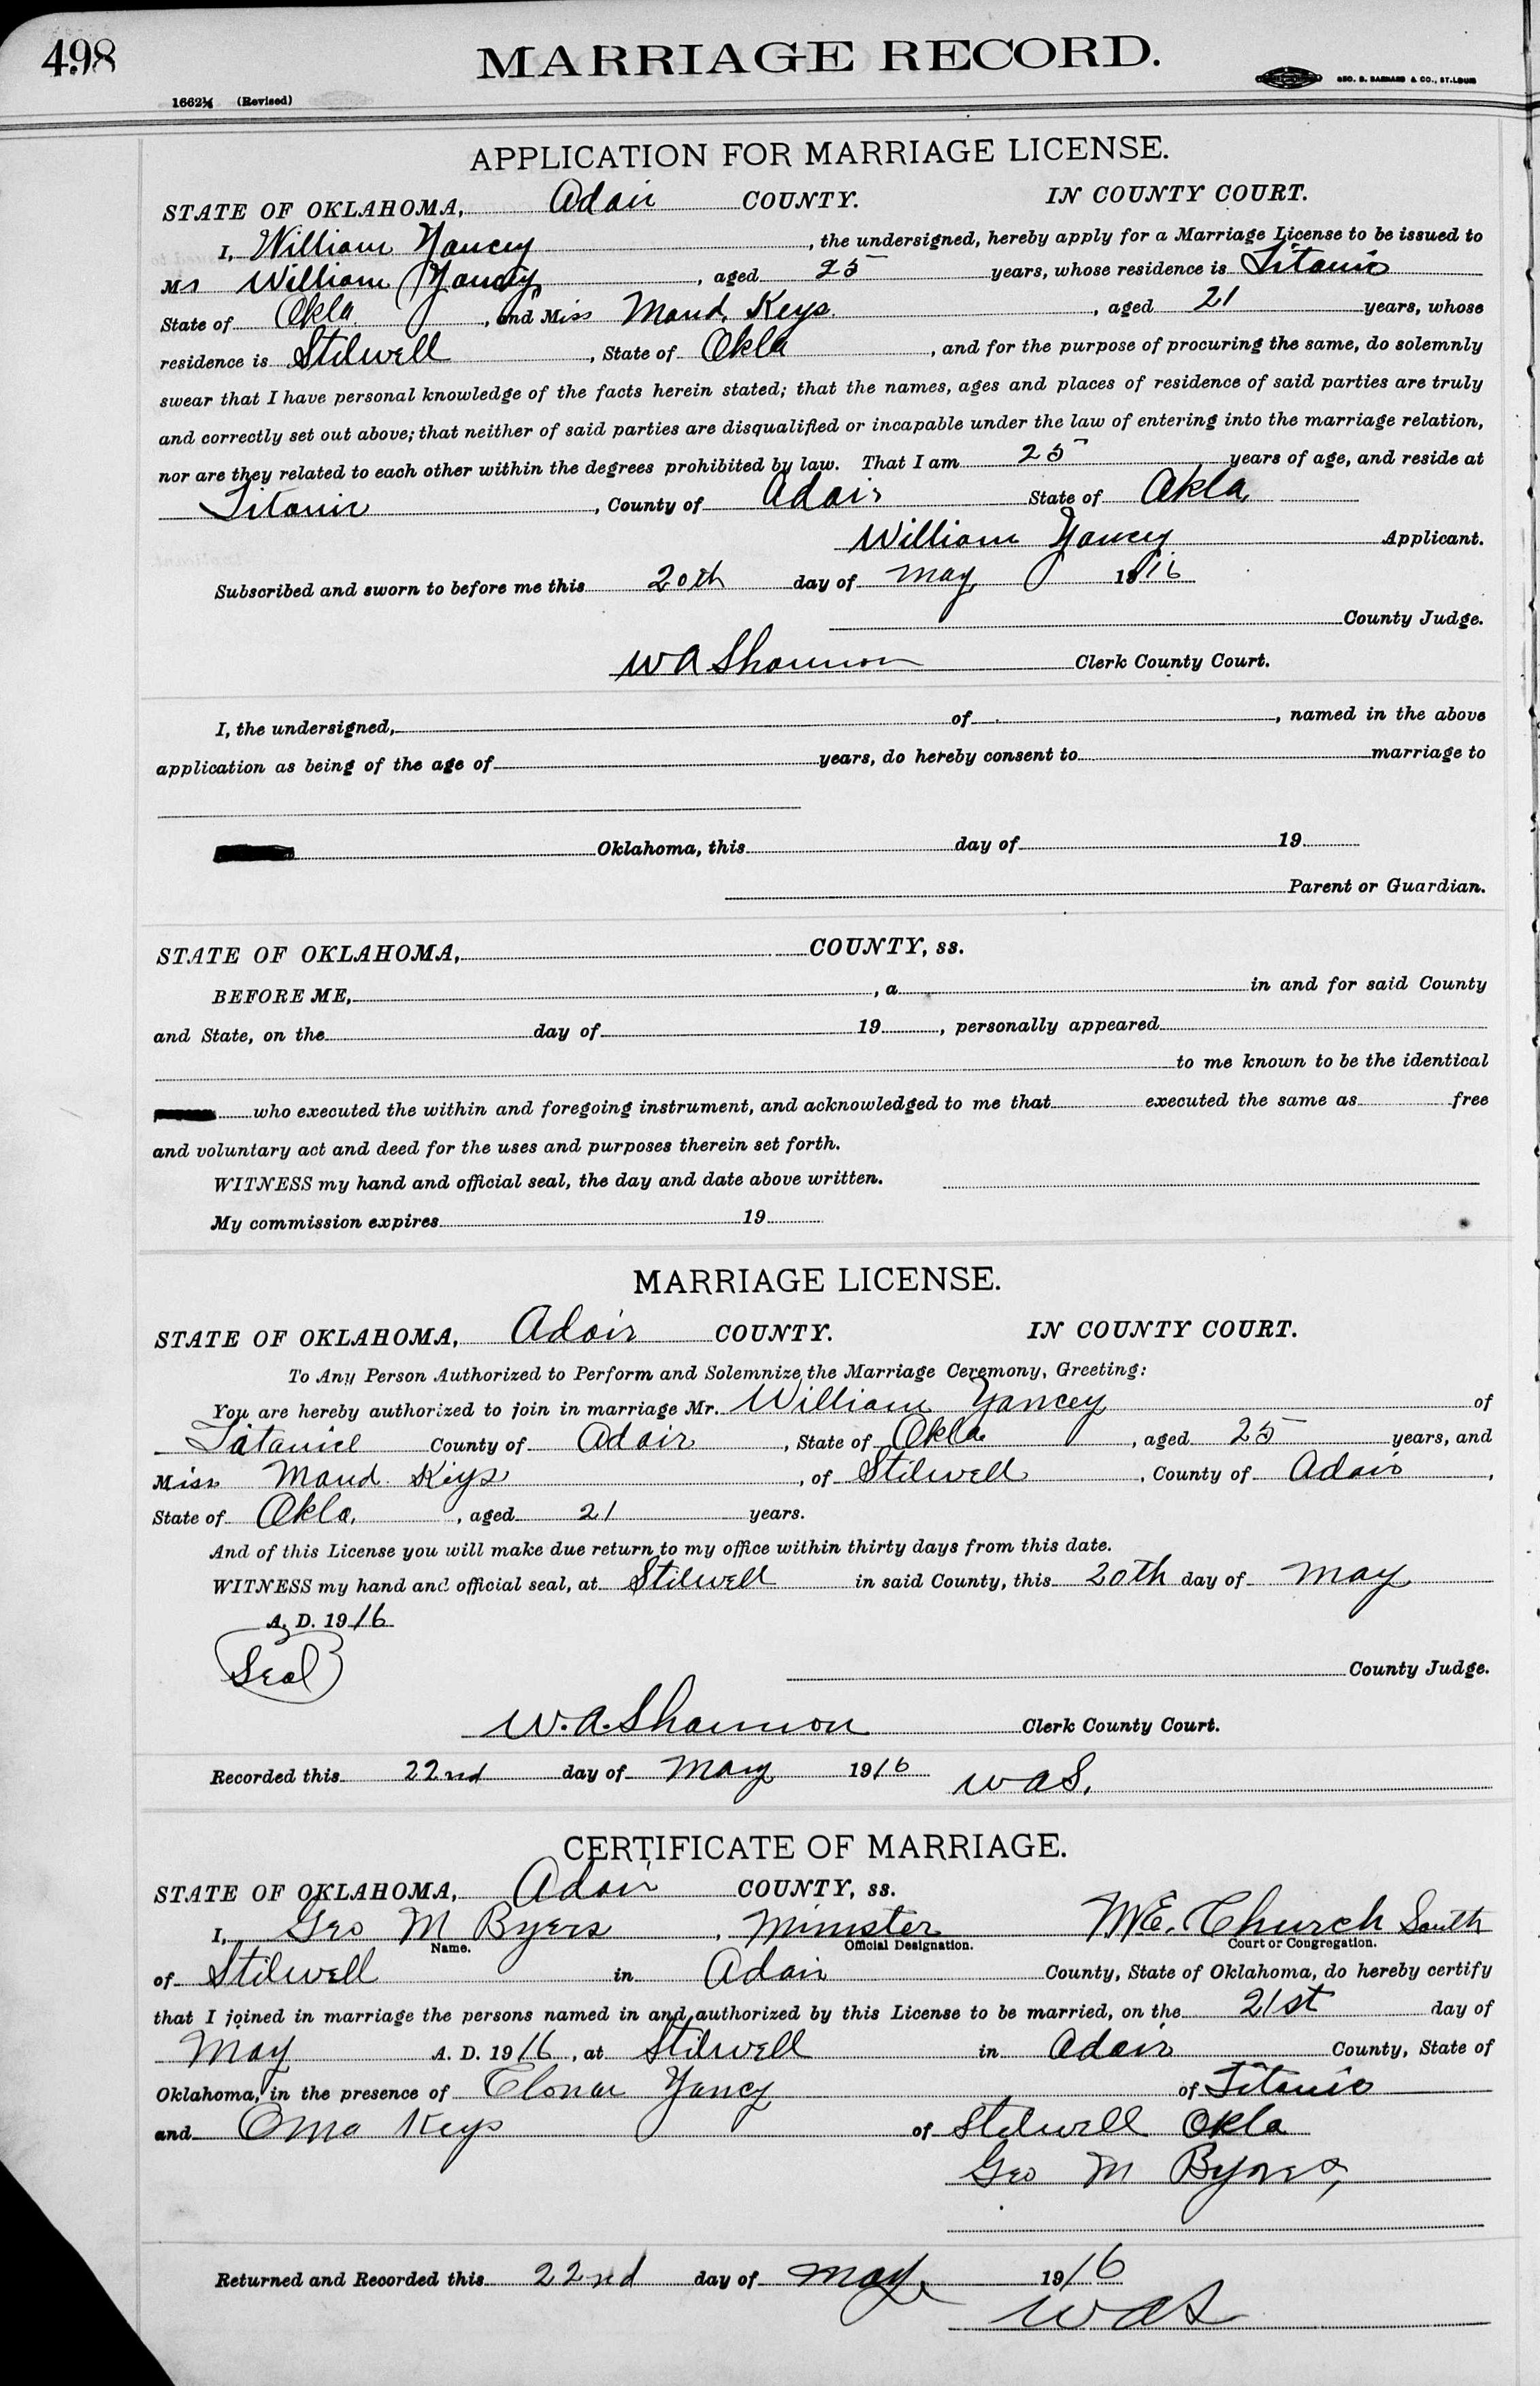 498
MARRIAGE RECORD.
1662½ (Revised)
GEO. D. BARNARD & CO., ST. LOUIS
APPLICATION FOR MARRIAGE LICENSE.
STATE OF OKLAHOMA, Adair COUNTY. IN COUNTY COURT.
I, William Yancey, the undersigned, hereby apply for a Marriage License to be issued to
Mr William Yancey, aged 25 years, whose residence is Titanic
State of Okla, and Miss Maud Keys, aged 21 years, whose
residence is Stilwell, State of Okla, and for the purpose of procuring the same, do solemnly
swear that I have personal knowledge of the facts herein stated; that the names, ages and places of residence of said parties are truly
and correctly set out above; that neither of said parties are disqualified or incapable under the law of entering into the marriage relation,
nor are they related to each other within the degrees prohibited by law. That I am 25 years of age, and reside at
Titanic, County of Adair State of Okla,
William Yancey Applicant.
Subscribed and sworn to before me this 20th day of May 1916
County Judge.
W A Shannon Clerk County Court.
I, the undersigned, of , named in the above
application as being of the age of years, do hereby consent to marriage to
Oklahoma, this day of 19
Parent or Guardian.
STATE OF OKLAHOMA, COUNTY, ss.
BEFORE ME, , a in and for said County
and State, on the day of 19 , personally appeared
to me known to be the identical
who executed the within and foregoing instrument, and acknowledged to me that executed the same as free
and voluntary act and deed for the uses and purposes therein set forth.
WITNESS my hand and official seal, the day and date above written.
My commission expires 19
MARRIAGE LICENSE.
STATE OF OKLAHOMA, Adair COUNTY. IN COUNTY COURT.
To Any Person Authorized to Perform and Solemnize the Marriage Ceremony, Greeting:
You are hereby authorized to join in marriage Mr. William Yancey of
County of Adair, State of Okla, aged 25 years, and
Miss Maud Keys, of Stilwell, County of Adair,
State of Okla., aged 21 years.
And of this License you will make due return to my office within thirty days from this date.
WITNESS my hand and official seal, at Stilwell in said County, this 20th day of May
A. D. 1916
Seal
County Judge.
W. A. Shannon Clerk County Court.
Recorded this 22nd day of May 1916 WAS.
CERTIFICATE OF MARRIAGE.
STATE OF OKLAHOMA, Adair COUNTY, ss.
I, Geo M Byers, Minister M.E. Church South
Name. Official Designation. Court or Congregation.
of Stilwell in Adair County, State of Oklahoma, do hereby certify
that I joined in marriage the persons named in and authorized by this License to be married, on the 21st day of
May A. D. 1916, at Stilwell in Adair County, State of
Oklahoma, in the presence of Yancy of Titanic
and Oma Keys of Stilwell Okla
Geo M Byers,
Returned and Recorded this 22nd day of May 1916
WAS